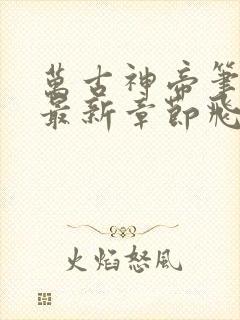 萬古神帝筆
最新章節飛
火焰怒風